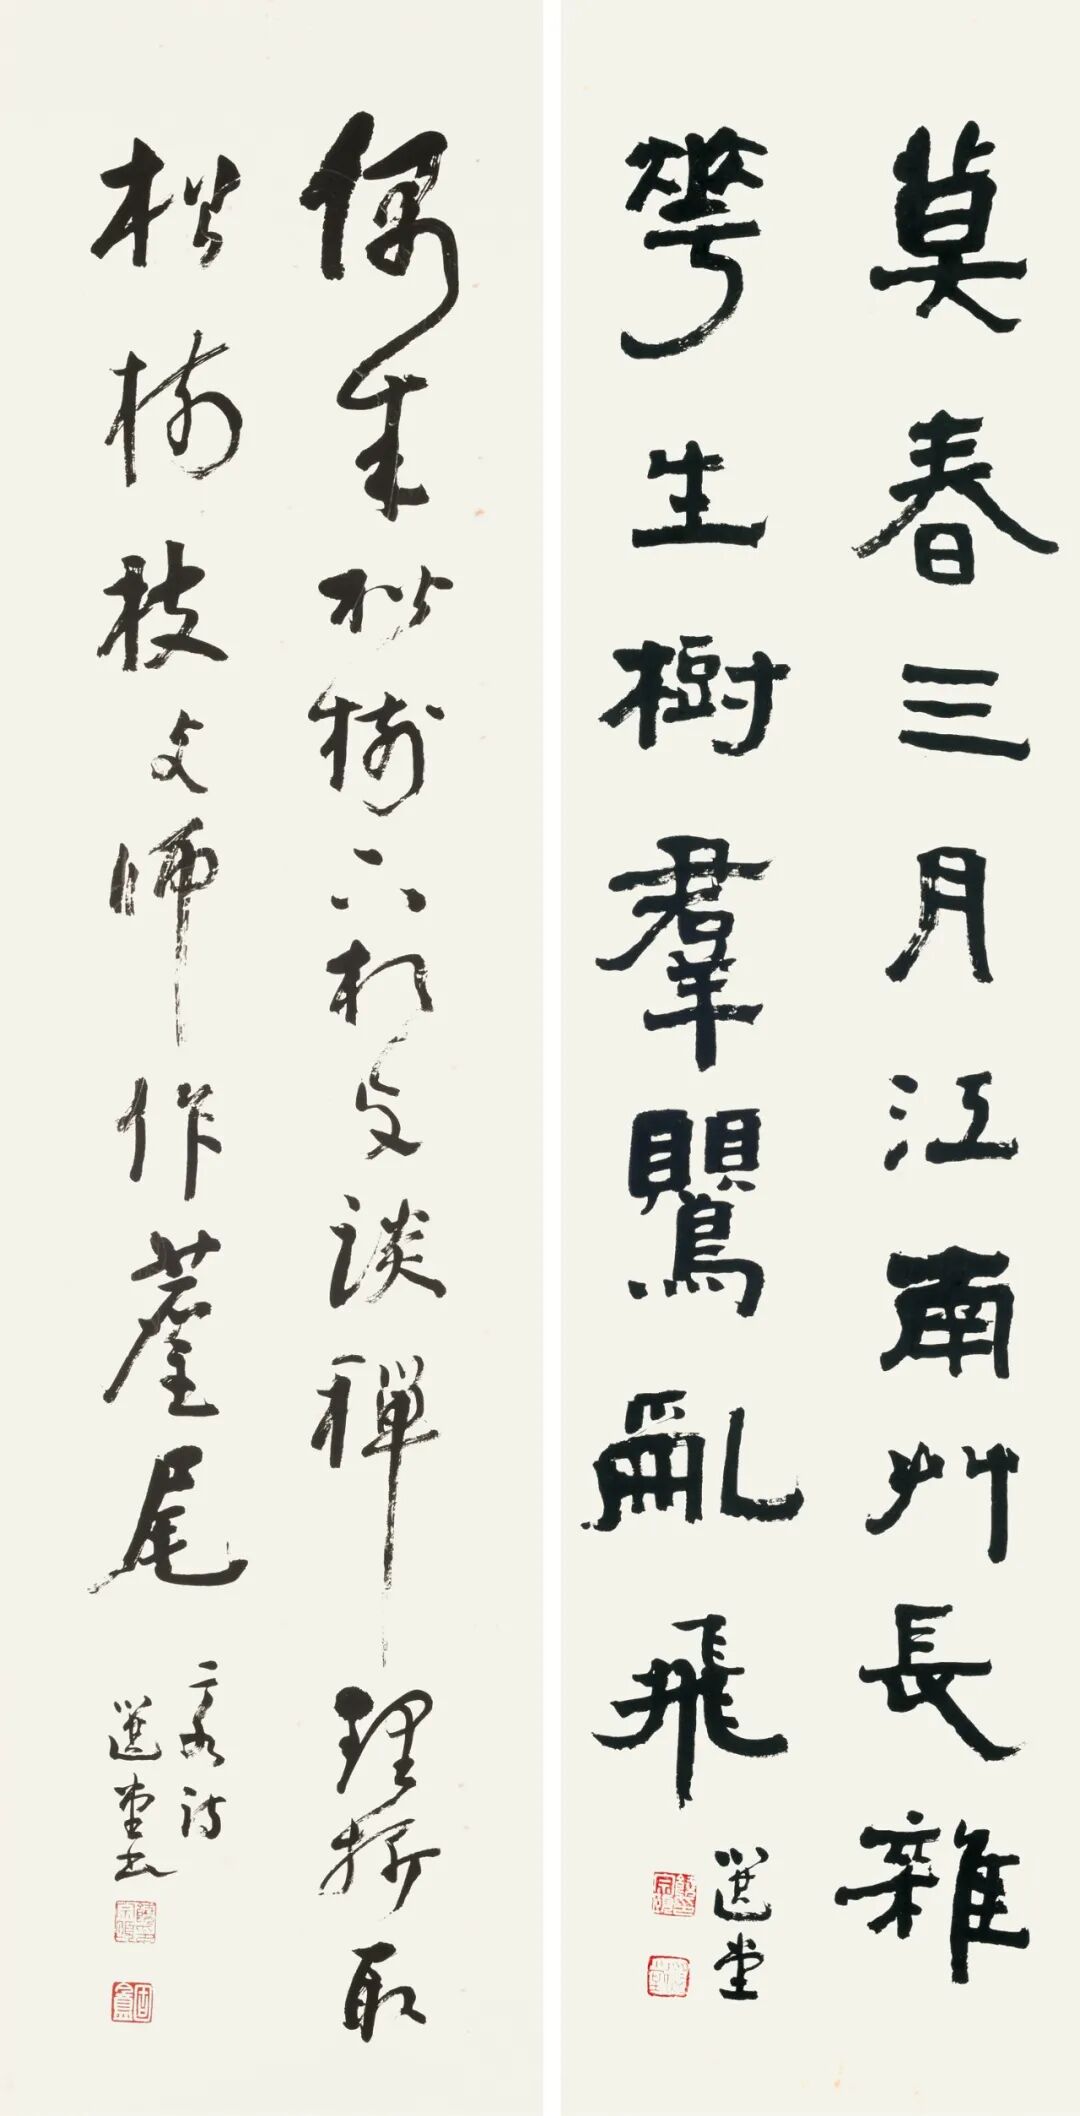 莫春三月江南艸長雜
華生樹羣鸎亂飛
選堂
偶来松樹下相与談禪理折取
松樹枝与師作麈尾
詩
選堂書